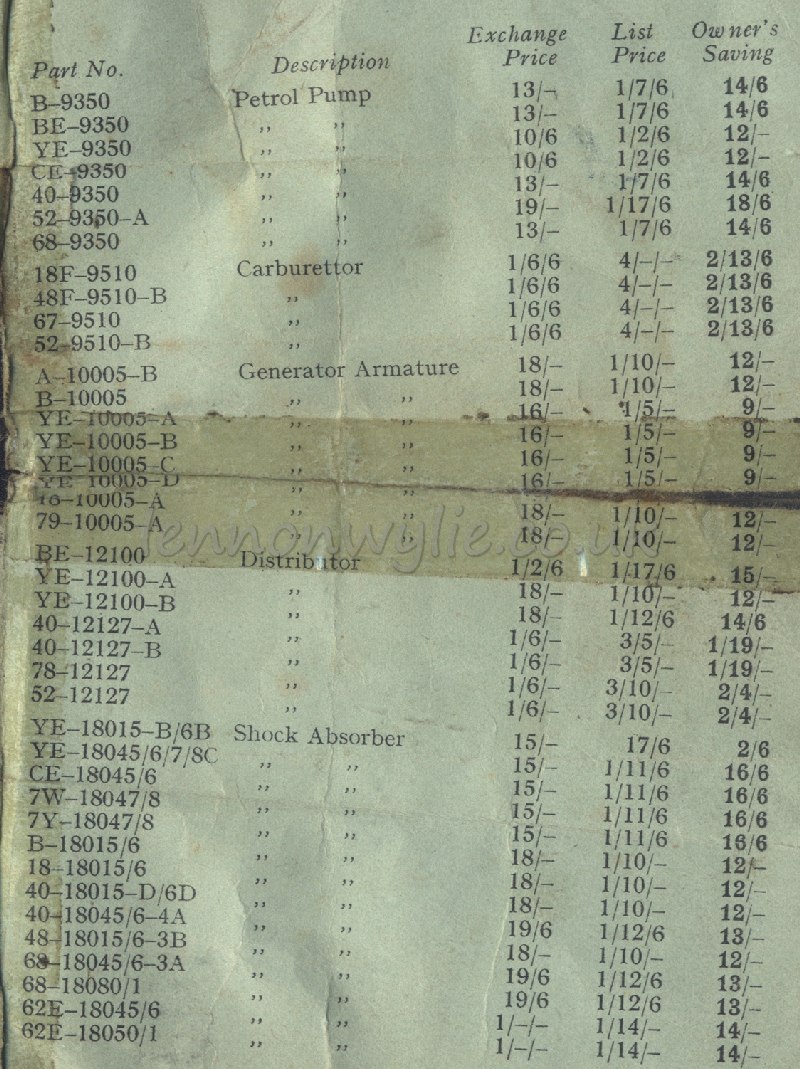 Part No. Description Exchange Price List Price Owner's Saving
B–9350 Petrol Pump 13/– 1/7/6 14/6
BE–9350 ,, ,, 13/– 1/7/6 14/6
YE–9350 ,, ,, 10/6 1/2/6 12/–
CE–9350 ,, ,, 10/6 1/2/6 12/–
40–9350 ,, ,, 13/– 1/7/6 14/6
52–9350–A ,, ,, 19/– 1/17/6 18/6
68–9350 ,, ,, 13/– 1/7/6 14/6
18F–9510 Carburettor 1/6/6 4/–/– 2/13/6
48F–9510–B ,, 1/6/6 4/–/– 2/13/6
67–9510 ,, 1/6/6 4/–/– 2/13/6
52–9510–B ,, 1/6/6 4/–/– 2/13/6
A–10005–B Generator Armature 18/– 1/10/– 12/–
B–10005 ,, ,, 18/– 1/10/– 12/–
YE–10005–A ,, ,, 16/– 1/5/– 9/–
YE–10005–B ,, ,, 16/– 1/5/– 9/–
YE–10005–C ,, ,, 16/– 1/5/– 9/–
YE–10005–D ,, ,, 16/– 1/5/– 9/–
–10005–A ,, ,, 18/– 1/10/– 12/–
79–10005–A ,, ,, 18/– 1/10/– 12/–
lennonwylie.co.uk
BE–12100 Distributor 1/2/6 1/17/6 15/–
YE–12100–A ,, 18/– 1/10/– 12/–
YE–12100–B ,, 18/– 1/12/6 14/6
40–12127–A ,, 1/6/– 3/5/– 1/19/–
40–12127–B ,, 1/6/– 3/5/– 1/19/–
78–12127 ,, 1/6/– 3/10/– 2/4/–
52–12127 ,, 1/6/– 3/10/– 2/4/–
YE–18015–B/6B Shock Absorber 15/– 17/6 2/6
YE–18045/6/7/8C ,, ,, 15/– 1/11/6 16/6
CE–18045/6 ,, ,, 15/– 1/11/6 16/6
7W–18047/8 ,, ,, 15/– 1/11/6 16/6
7Y–18047/8 ,, ,, 15/– 1/11/6 16/6
B–18015/6 ,, ,, 18/– 1/10/– 12/–
18–18015/6 ,, ,, 18/– 1/10/– 12/–
40–18015–D/6D ,, ,, 18/– 1/10/– 12/–
40–18045/6–4A ,, ,, 19/6 1/12/6 13/–
48–18015/6–3B ,, ,, 18/– 1/10/– 12/–
68–18045/6–3A ,, ,, 19/6 1/12/6 13/–
68–18080/1 ,, ,, 19/6 1/12/6 13/–
62E–18045/6 ,, ,, 1/–/– 1/14/– 14/–
62E–18050/1 ,, ,, 1/–/– 1/14/– 14/–